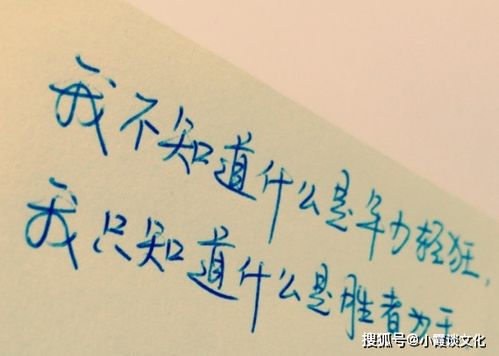 我不知道什么是年力轻狂，
我只知道什么是胜者为王
搜狐号@小霞谈文化